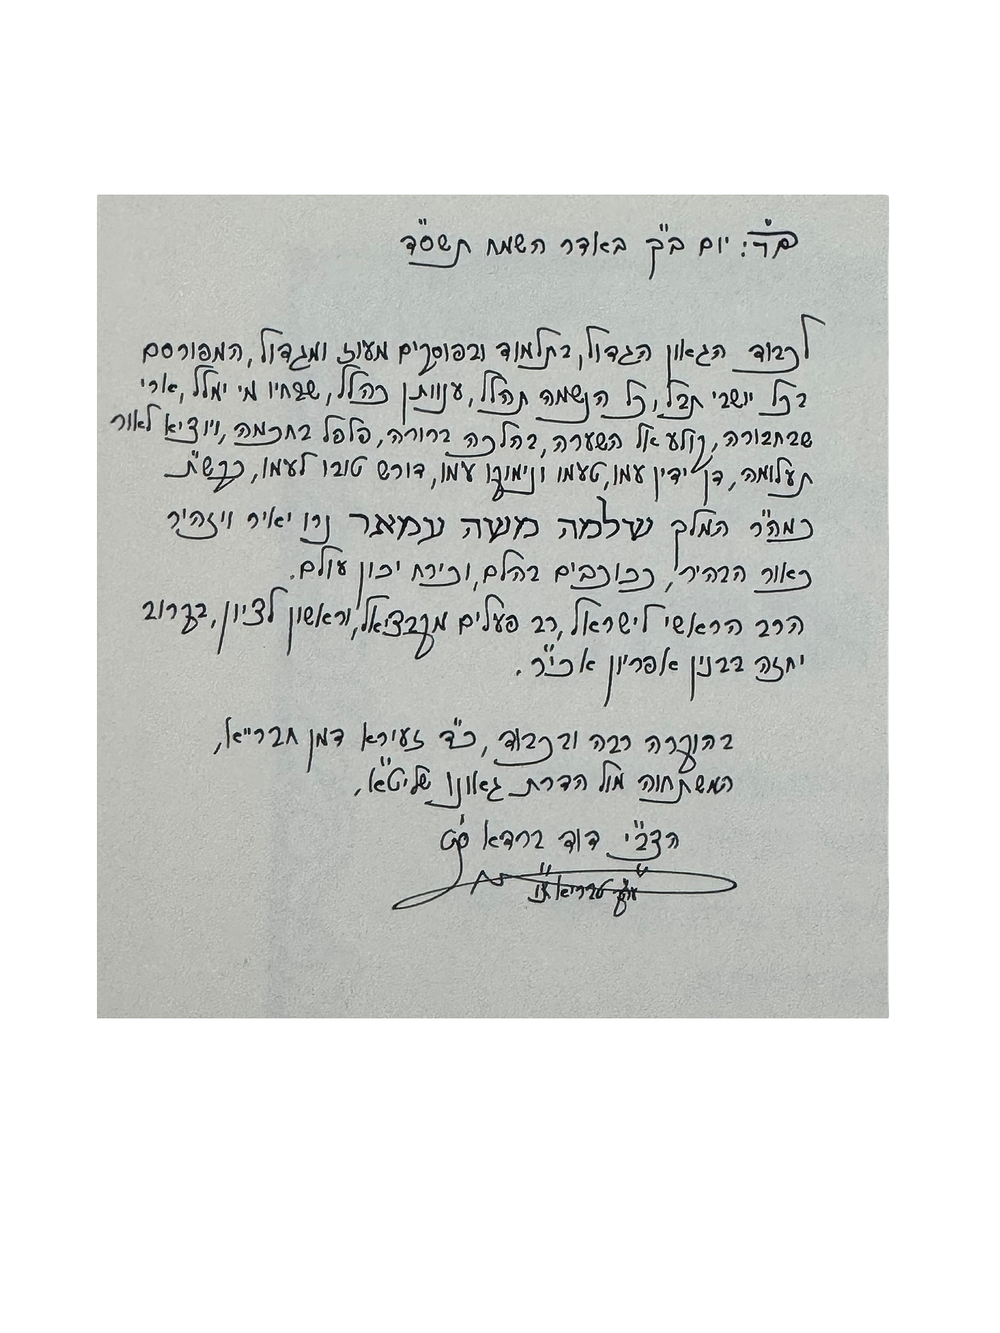 בס"ד: יום ב"ק באדר השמח תשס"ד
לכבוד הגאון הגדול, בתלמוד ובפוסקים מעוז ומגדול, המפורסם
בכל יושבי תבל, כל הנשמה תהלל, ענוותן כהלל, שבחיו מי ימלל, ארי
שבחבורה, קולע אל השערה, בהלכה ברורה, פלפל בחכמה, ויוציא לאור
תעלומה, דן ידין עמו, טעמו ונימוקו עמו, דורש טוב לעמו, כקש"ת
כמה"ר המלך שלמה משה עמאר נרו יאיר ויזהיר
כאור הבהיר, ככוכבים בהלם, וכירח יכון עולם.
הרב הראשי לישראל, רב פעלים מקבציאל, וראשון לציון, בקרוב
יחזה בבנין אפריון אכי"ר.
בהוקרה רבה ובכבוד, כ"ד זעירא דמן חברייא,
המשתחוה מול הדרת גאונו שליט"א,
הצב"י דוד ברדא ס"ט
עיה"ק טבריא ת"ו